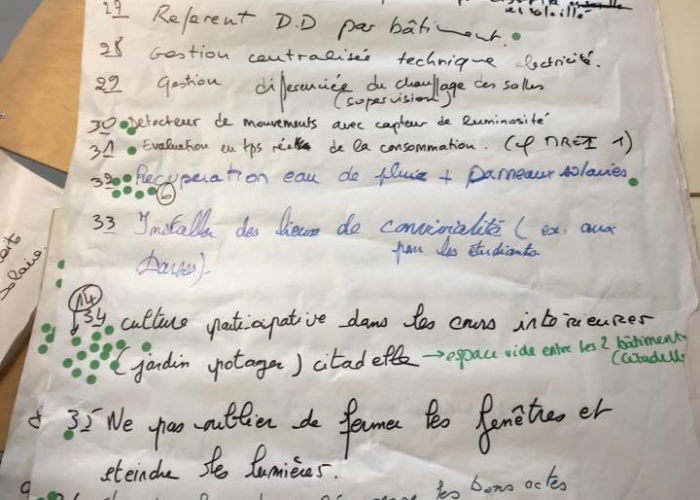 27 Referent D.D par bâtiment.
28 Gestion centralisée technique electricité.
29 Gestion differenciée du chauffage des salles
(supervision)
30 Detecteur de mouvements avec capteur de luminosité
31 Evaluation en tps réel de la consommation. (cf 1)
32 Recuperation eau de pluie + Panneaux solaires
6
33 Installer des lieux de convivialité (ex: aux
pour les étudiants
14
34 culture participative dans les cours interieures
(jardin potager) citadelle → espace vide entre les 2 bâtiments
(citadelle
35 Ne pas oublier de fermer les fenêtres et
eteindre les lumières.
les bons actes